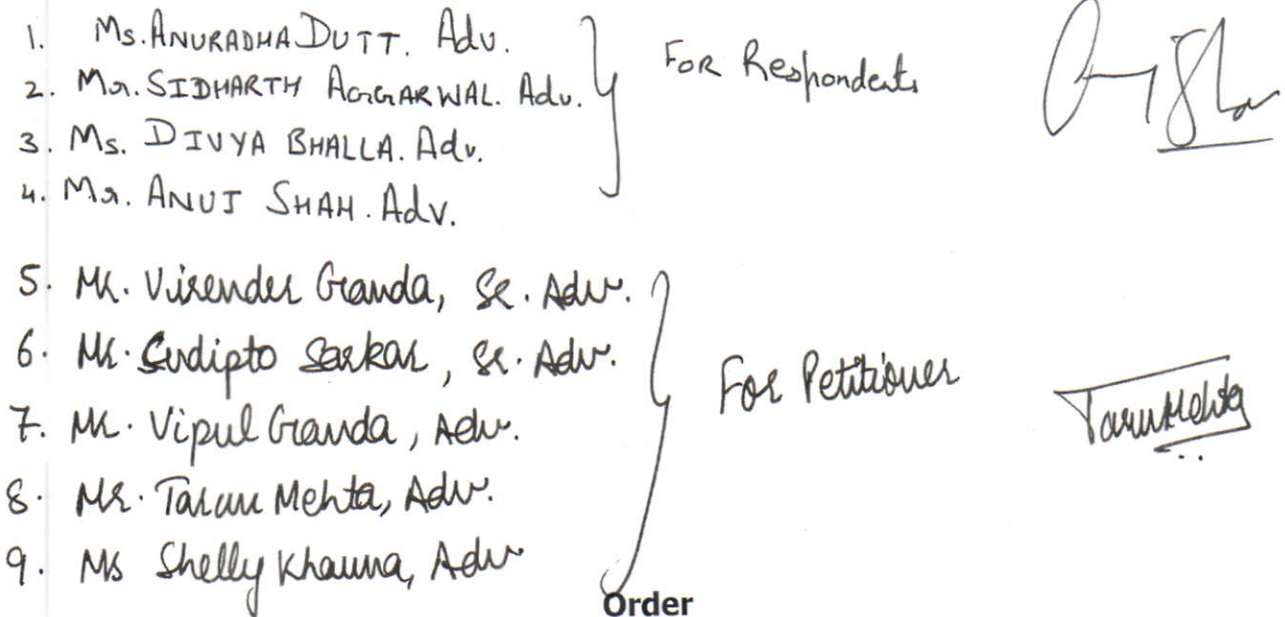 1. Ms. ANURADHA DUTT. Adv.
2. Mr. SIDHARTH AGGARWAL. Adv.
3. Ms. DIVYA BHALLA. Adv.
4. Mr. ANUJ SHAH. Adv.
For Respondents
5. Mr. Virender Ganda, Sr. Adv.
6. Mr. Sudipto Sarkar, Sr. Adv.
7. Mr. Vipul Ganda, Adv.
8. Mr. Tarun Mehta, Adv.
9. Ms Shelly Khanna, Adv
For Petitioner
Tarun Mehta
Order